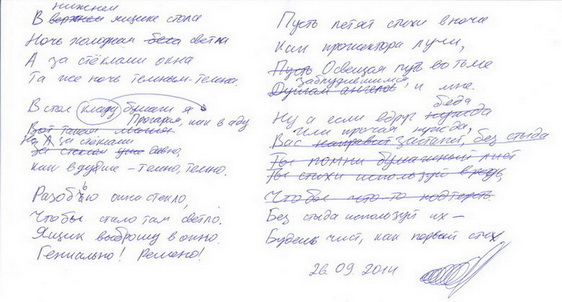 нижнем
В верхнем ящике стола
Ночь холодная бела светла
А за стёклами окна
Та же ночь темным-темна.
В стол кладу бумаги я
Прогорая, как в аду
Вот такая
На А за стёклами
За стеклом
как в дупле - темно, темно.
Разобью окно стекло,
Чтобы стало там светло.
Ящик выброшу в окно.
Гениально! Решено!
Пусть летят стихи в ночи
Как прожектора лучи,
Пусть Освещая путь во тьме
Заблудившимся
Думая и мне.
беда
Ну а если вдруг нужда
или прочая нужда,
Вас застанет, без стыда
Ты помни бумажный лист
Ты стихи используй
Чтобы что-то подтереть
Без стыда используй их -
Будешь чист, как первый стих.
26.09.2014